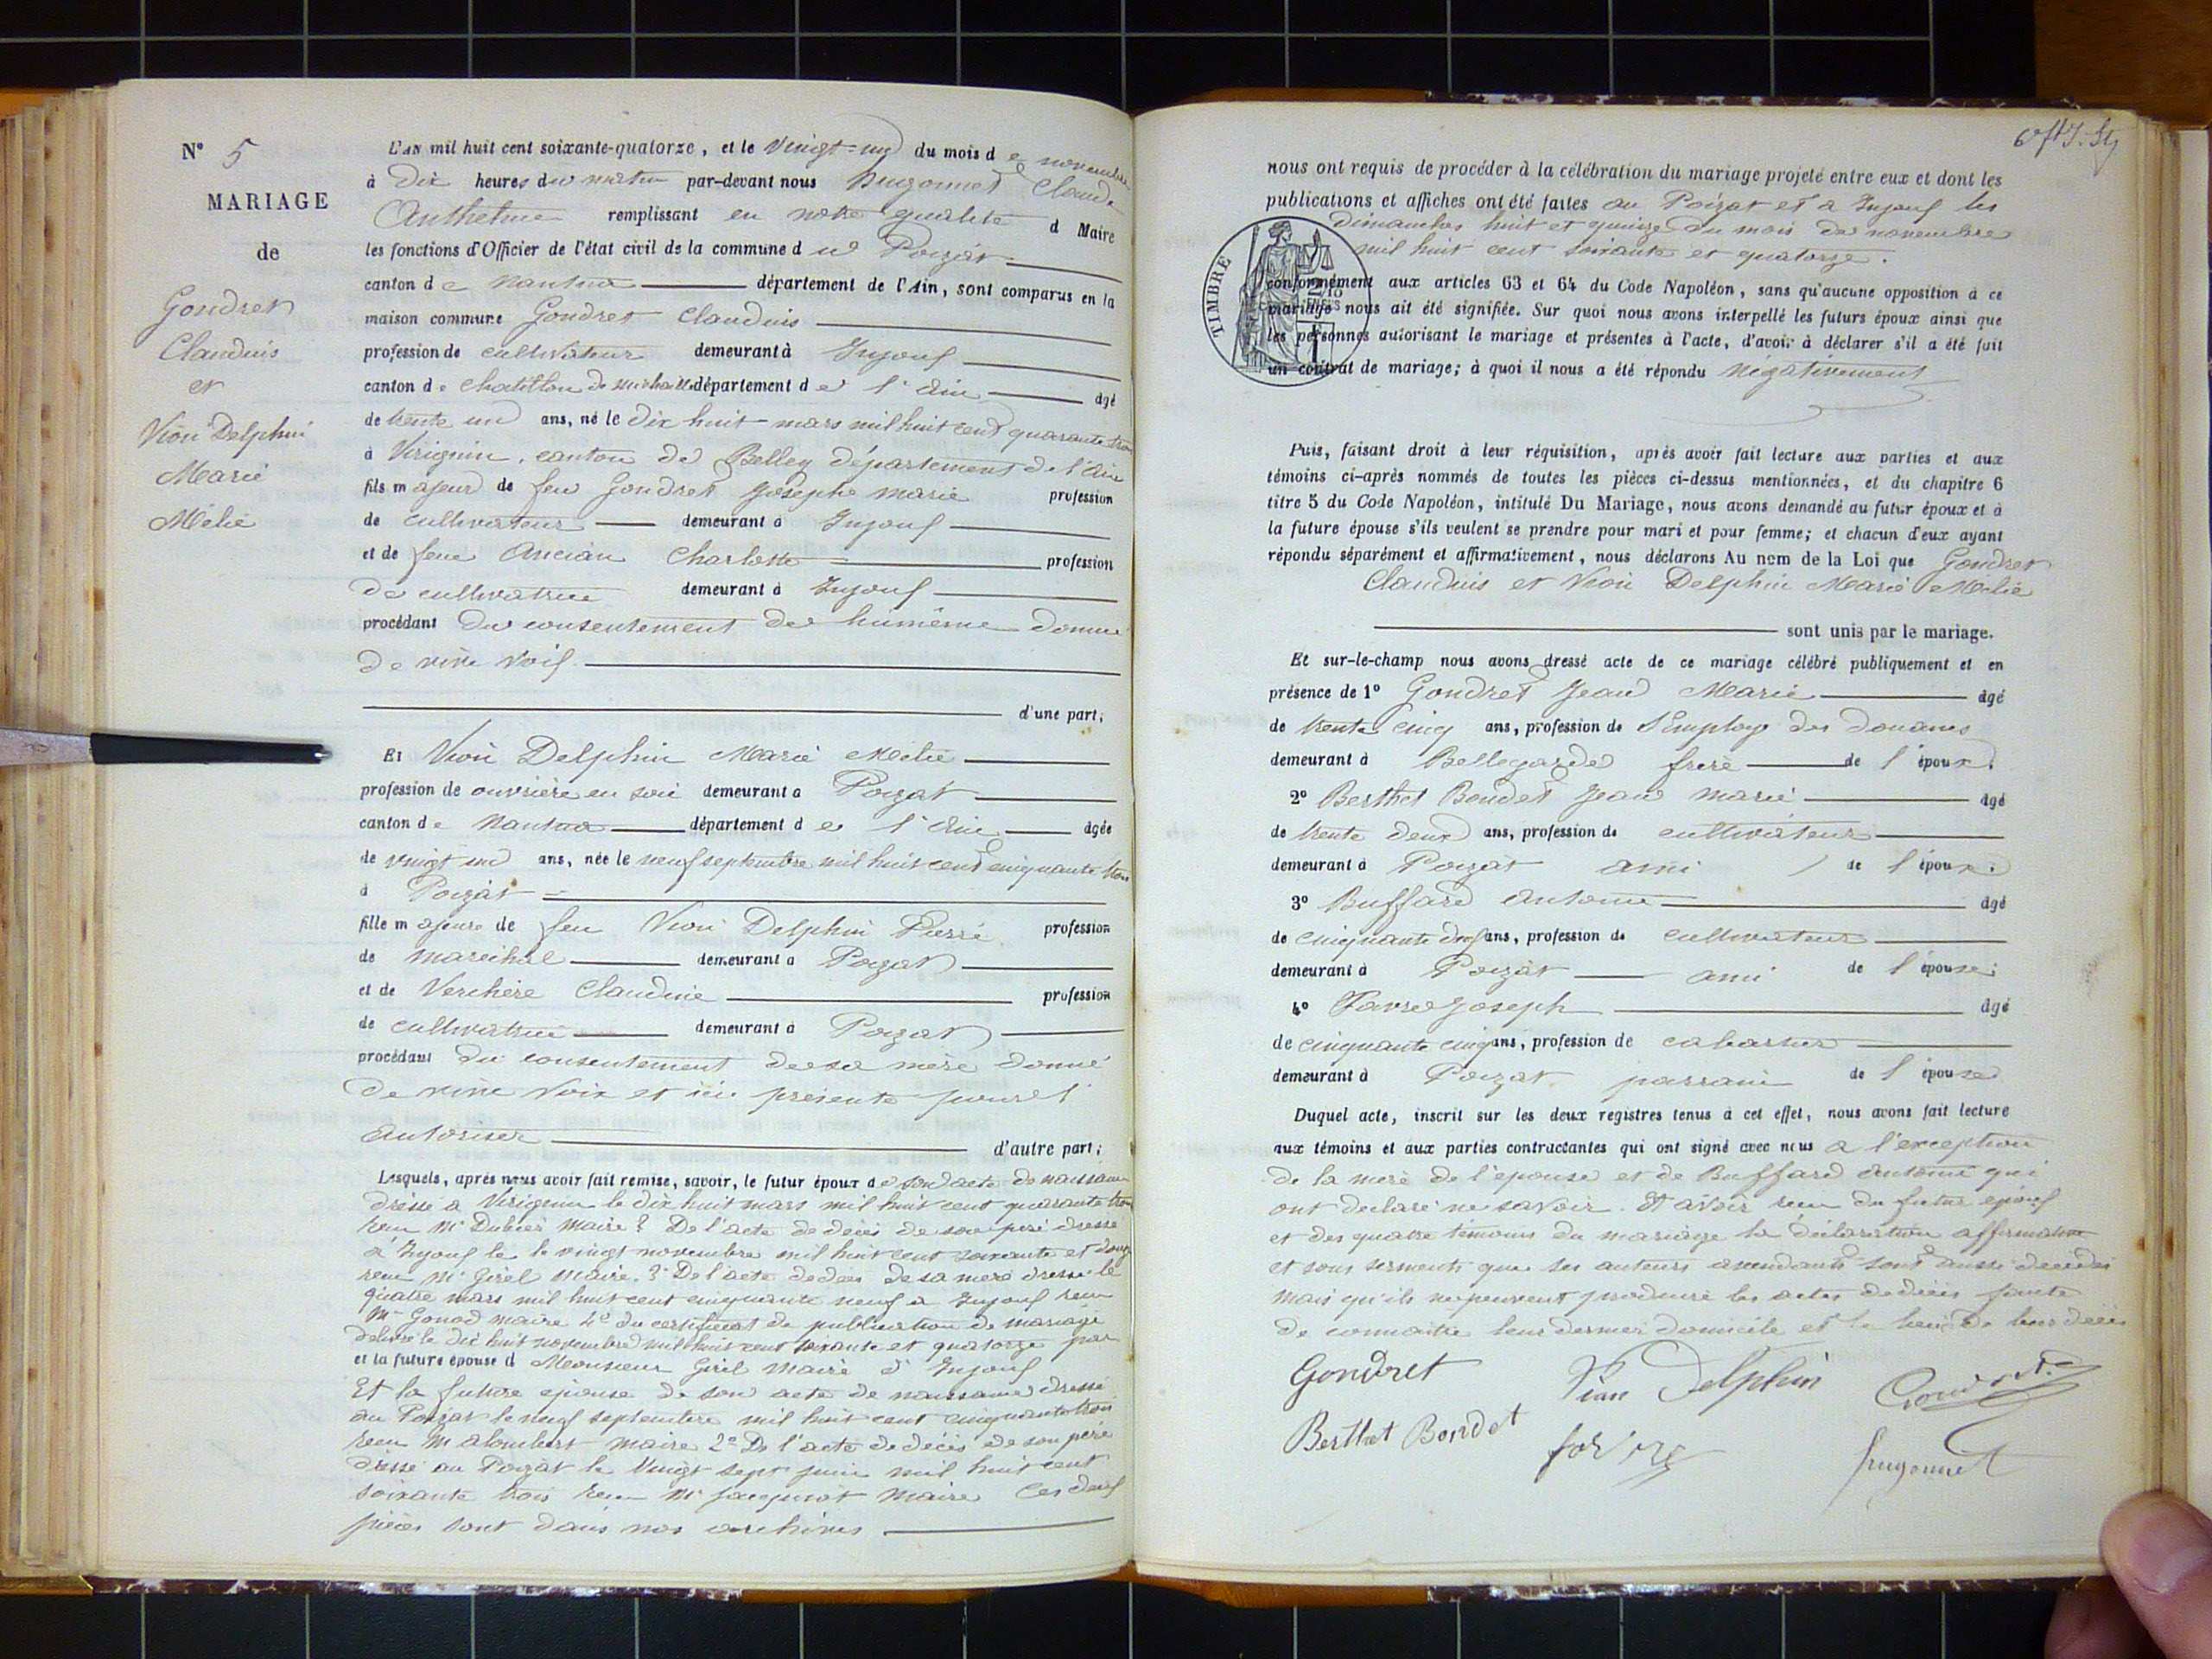 N° 5
MARIAGE
de
Gondret
Claudius
et
Vion Delphin
Marie
Mélie
L'AN mil huit cent soixante-quatorze, et le vingt-un du mois de novembre
à Dix heures du matin par-devant nous Hugonnet Claude
Anthelme remplissant en notre qualité d Maire
les fonctions d'Officier de l'état civil de la commune d u Poizat
canton de Nantua département de l'Ain, sont comparus en la
maison commune Gondret Claudius
profession de cultivateur demeurant à Injoux
canton de Chatillon de michaille département de l'Ain âgé
de trente un ans, né le dix huit mars mil huit cent quarante trois
à Virignin, canton de Belley département de l'Ain
fils majeur de feu Gondret Josephe marie profession
de cultivateur demeurant à Injoux
et de feue Ancian Charlotte profession
de cultivatrice demeurant à Injoux
procédant du consentement de lui même donné
de vive voix
d'une part;
Et Vion Delphin Marie Mélie
profession de ouvrière en soie demeurant à Poizat
canton de Nantua département de l'Ain âgée
de vingt un ans, née le neuf septembre mil huit cent cinquante trois
à Poizat
fille majeure de feu Vion Delphin Pierre profession
de maréchal demeurant à Poizat
et de Verchère Claudine profession
de cultivatrice demeurant à Poizat
procédant du consentement de sa mère donné
de vive voix et ici présente pour l'
autoriser d'autre part;
Lesquels, après nous avoir fait remise, savoir, le futur époux de son acte de naissance
dressé à Virignin le dix huit mars mil huit cent quarante trois
reçu Mr Maire 2° De l'acte de décès de son père dressé
à Injoux le vingt novembre mil huit cent soixante et douze
reçu Mr Girel Maire. 3° De l'acte de décès de sa mère dressé le
quatre mars mil huit cent cinquante neuf à Injoux reçu
Mr maire 4° du certificat de publication de mariage
délivré le dix huit novembre mil huit cent soixante et quatorze par
et la future épouse d Monsieur Girel Maire d'Injoux
Et la future épouse de son acte de naissance dressé
au Poizat le neuf septembre mil huit cent cinquante trois
reçu Mr maire 2° De l'acte de décès de son père
dressé au Poizat le vingt sept juin mil huit cent
soixante trois reçu Mr Jacquinot Maire Ces deux
pièces sont dans nos archives
nous ont requis de procéder à la célébration du mariage projeté entre eux et dont les
publications et affiches ont été faites au Poizat et à Injoux les
Dimanches huit et quinze du mois de novembre
mil huit cent soixante et quatorze.
TIMBRE
conformément aux articles 63 et 64 du Code Napoléon, sans qu'aucune opposition à ce
mariage nous ait été signifiée. Sur quoi nous avons interpellé les futurs époux ainsi que
les personnes autorisant le mariage et présentes à l'acte, d'avoir à déclarer s'il a été fait
un contrat de mariage; à quoi il nous a été répondu négativement
Puis, faisant droit à leur réquisition, après avoir fait lecture aux parties et aux
témoins ci-après nommés de toutes les pièces ci-dessus mentionnées, et du chapitre 6
titre 5 du Code Napoléon, intitulé Du Mariage, nous avons demandé au futur époux et à
la future épouse s'ils veulent se prendre pour mari et pour femme; et chacun d'eux ayant
répondu séparément et affirmativement, nous déclarons Au nom de la Loi que Gondret
Claudius et Vion Delphin Marie Mélie
sont unis par le mariage.
Et sur-le-champ nous avons dressé acte de ce mariage célébré publiquement et en
présence de 1° Gondret Jean Marie âgé
de trente cinq ans, profession de l'Employé des douanes
demeurant à Bellegarde frère de l'époux.
2° Berthet Bondet Jean Marie âgé
de trente deux ans, profession de cultivateur
demeurant à Poizat ami de l'époux.
3° Buffard Antoine âgé
de cinquante ans, profession de cultivateur
demeurant à Poizat ami de l'épouse;
4° Favre Joseph âgé
de cinquante cinq ans, profession de cabartier
demeurant à Poizat parrain de l'épouse
Duquel acte, inscrit sur les deux registres tenus à cet effet, nous avons fait lecture
aux témoins et aux parties contractantes qui ont signé avec nous à l'exception
de la mère de l'épouse et de Buffard Antoine qui
ont déclaré ne savoir. Et avoir reçu du futur époux
et des quatre témoins du mariage la déclaration affirmative
et sous serments que ses auteurs ascendants sont aussi décédés
mais qu'ils ne peuvent produire les actes de décès faute
de connaître leur dernier domicile et le lieu de leur décès
Gondret Vion Delphin Gondret
Berthet Bondet favre Hugonnet